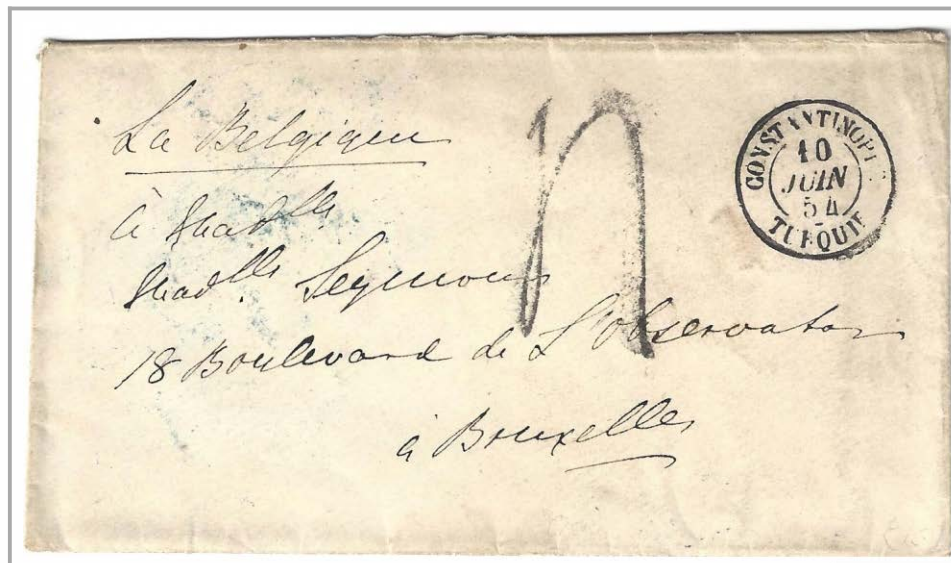 La Belgique
à Madlle
Madlle. Seymour
18 Boulevard de L'observatoir
à Bruxelles
CONSTANTINOPLE
10
JUIN
54
TURQUIE